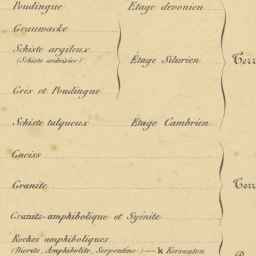 Poudingue Étage devonien
Grauwacke
Schiste argileux
(Schiste ardoisier) Étage Silurien
Grès et Poudingue
Schiste talqueux Étage Cambrien
Gneiss
Granite
Granite amphibolique et Syénite
Roches amphiboliques
(Diorite, Amphibolite, Serpentine) K Kersanton